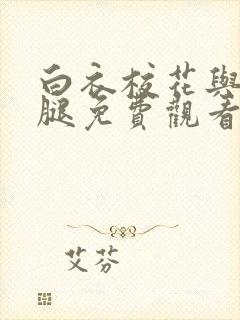 白衣校花與
腿免費觀看
艾芬